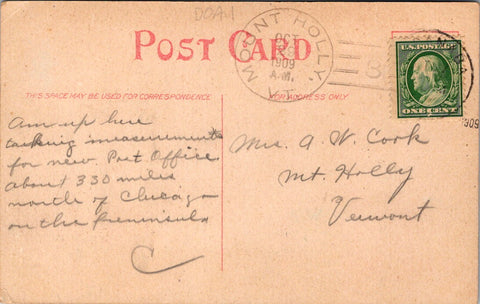 DOAH
POST CARD
MOUNT HOLLY,
OCT
1909
A.M.
VT.
U.S. POSTAGE
ONE CENT
1909
THIS SPACE MAY BE USED FOR CORRESPONDENCE
FOR ADDRESS ONLY
Am up here
taking measurements
for new Post Office
about 330 miles
north of Chicago
on the Peninsula
C
Mrs. A. W. Cook
Mt. Holly
Vermont